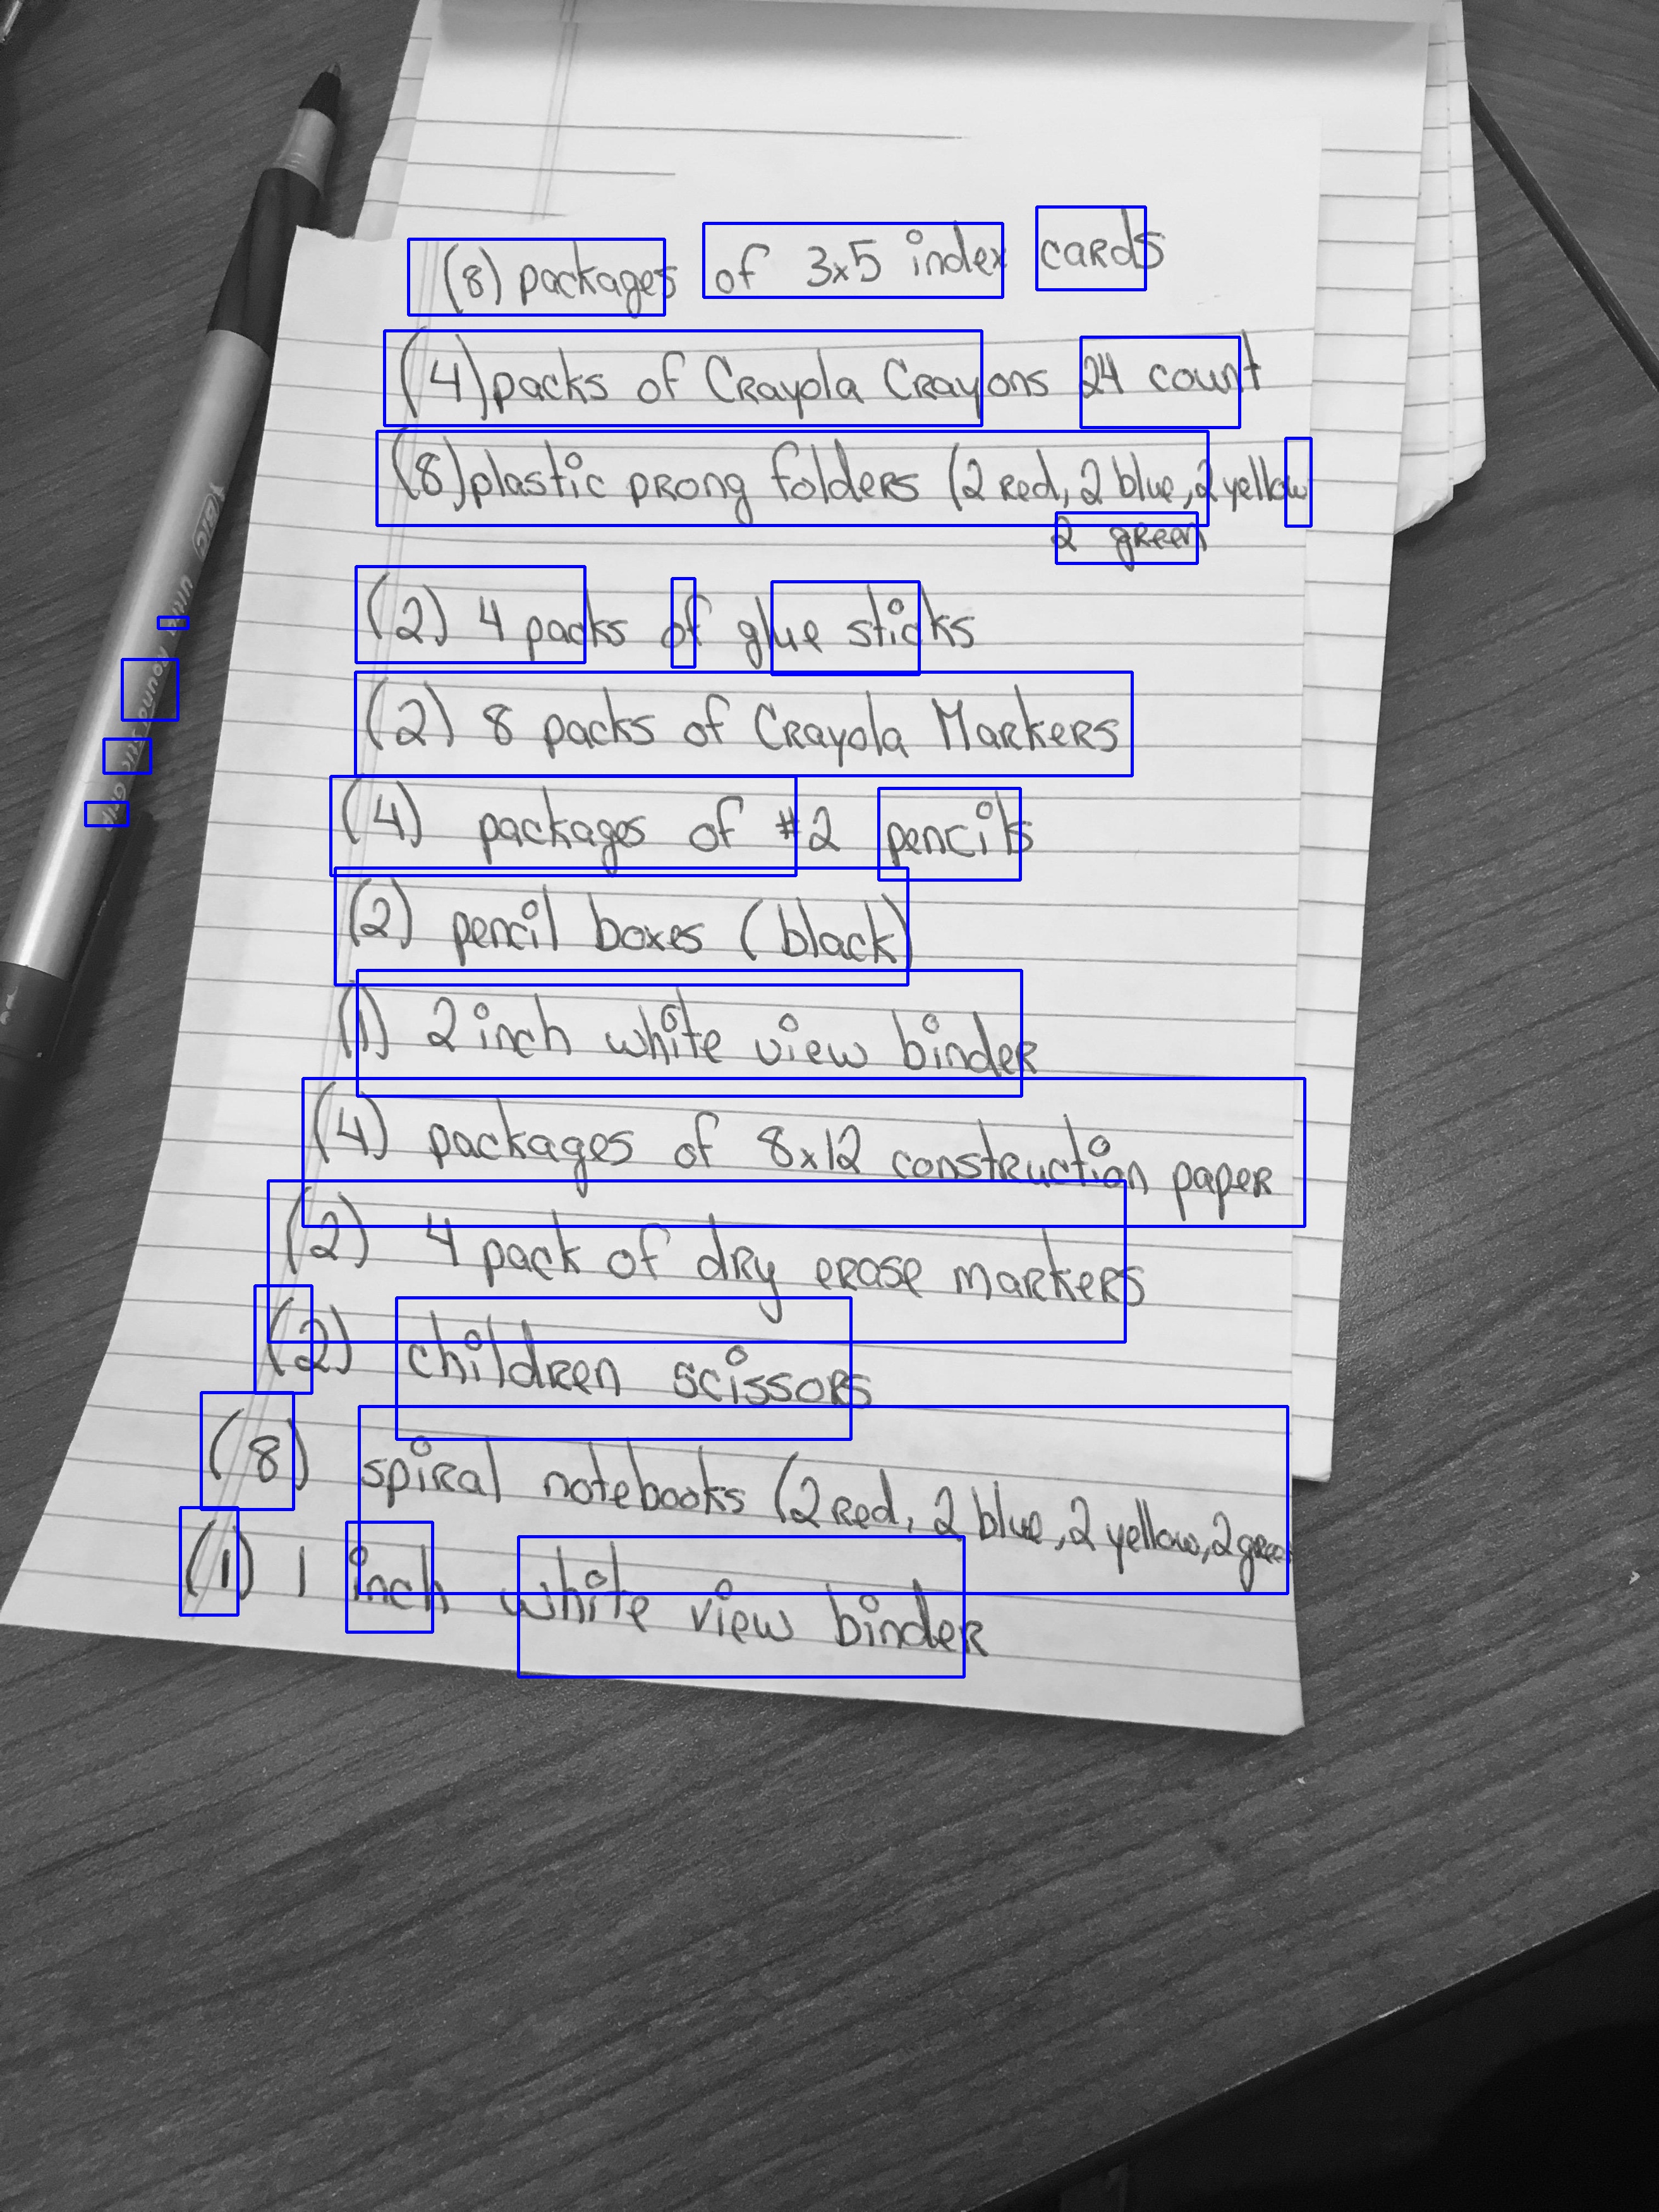 (8) packages of 3x5 index cards
(4) packs of Crayola Crayons 24 count
(8) plastic prong folders (2 red, 2 blue, 2 yellow
2 green
(2) 4 packs of glue sticks
(2) 8 packs of Crayola Markers
(4) packages of #2 pencils
(2) pencil boxes (black)
(1) 2 inch white view binder
(4) packages of 8x12 construction paper
(2) 4 pack of dry erase markers
(2) children scissors
(8) spiral notebooks (2 red, 2 blue, 2 yellow, 2 green
(1) 1 inch white view binder
BIC
Ultra Round Stic Grip